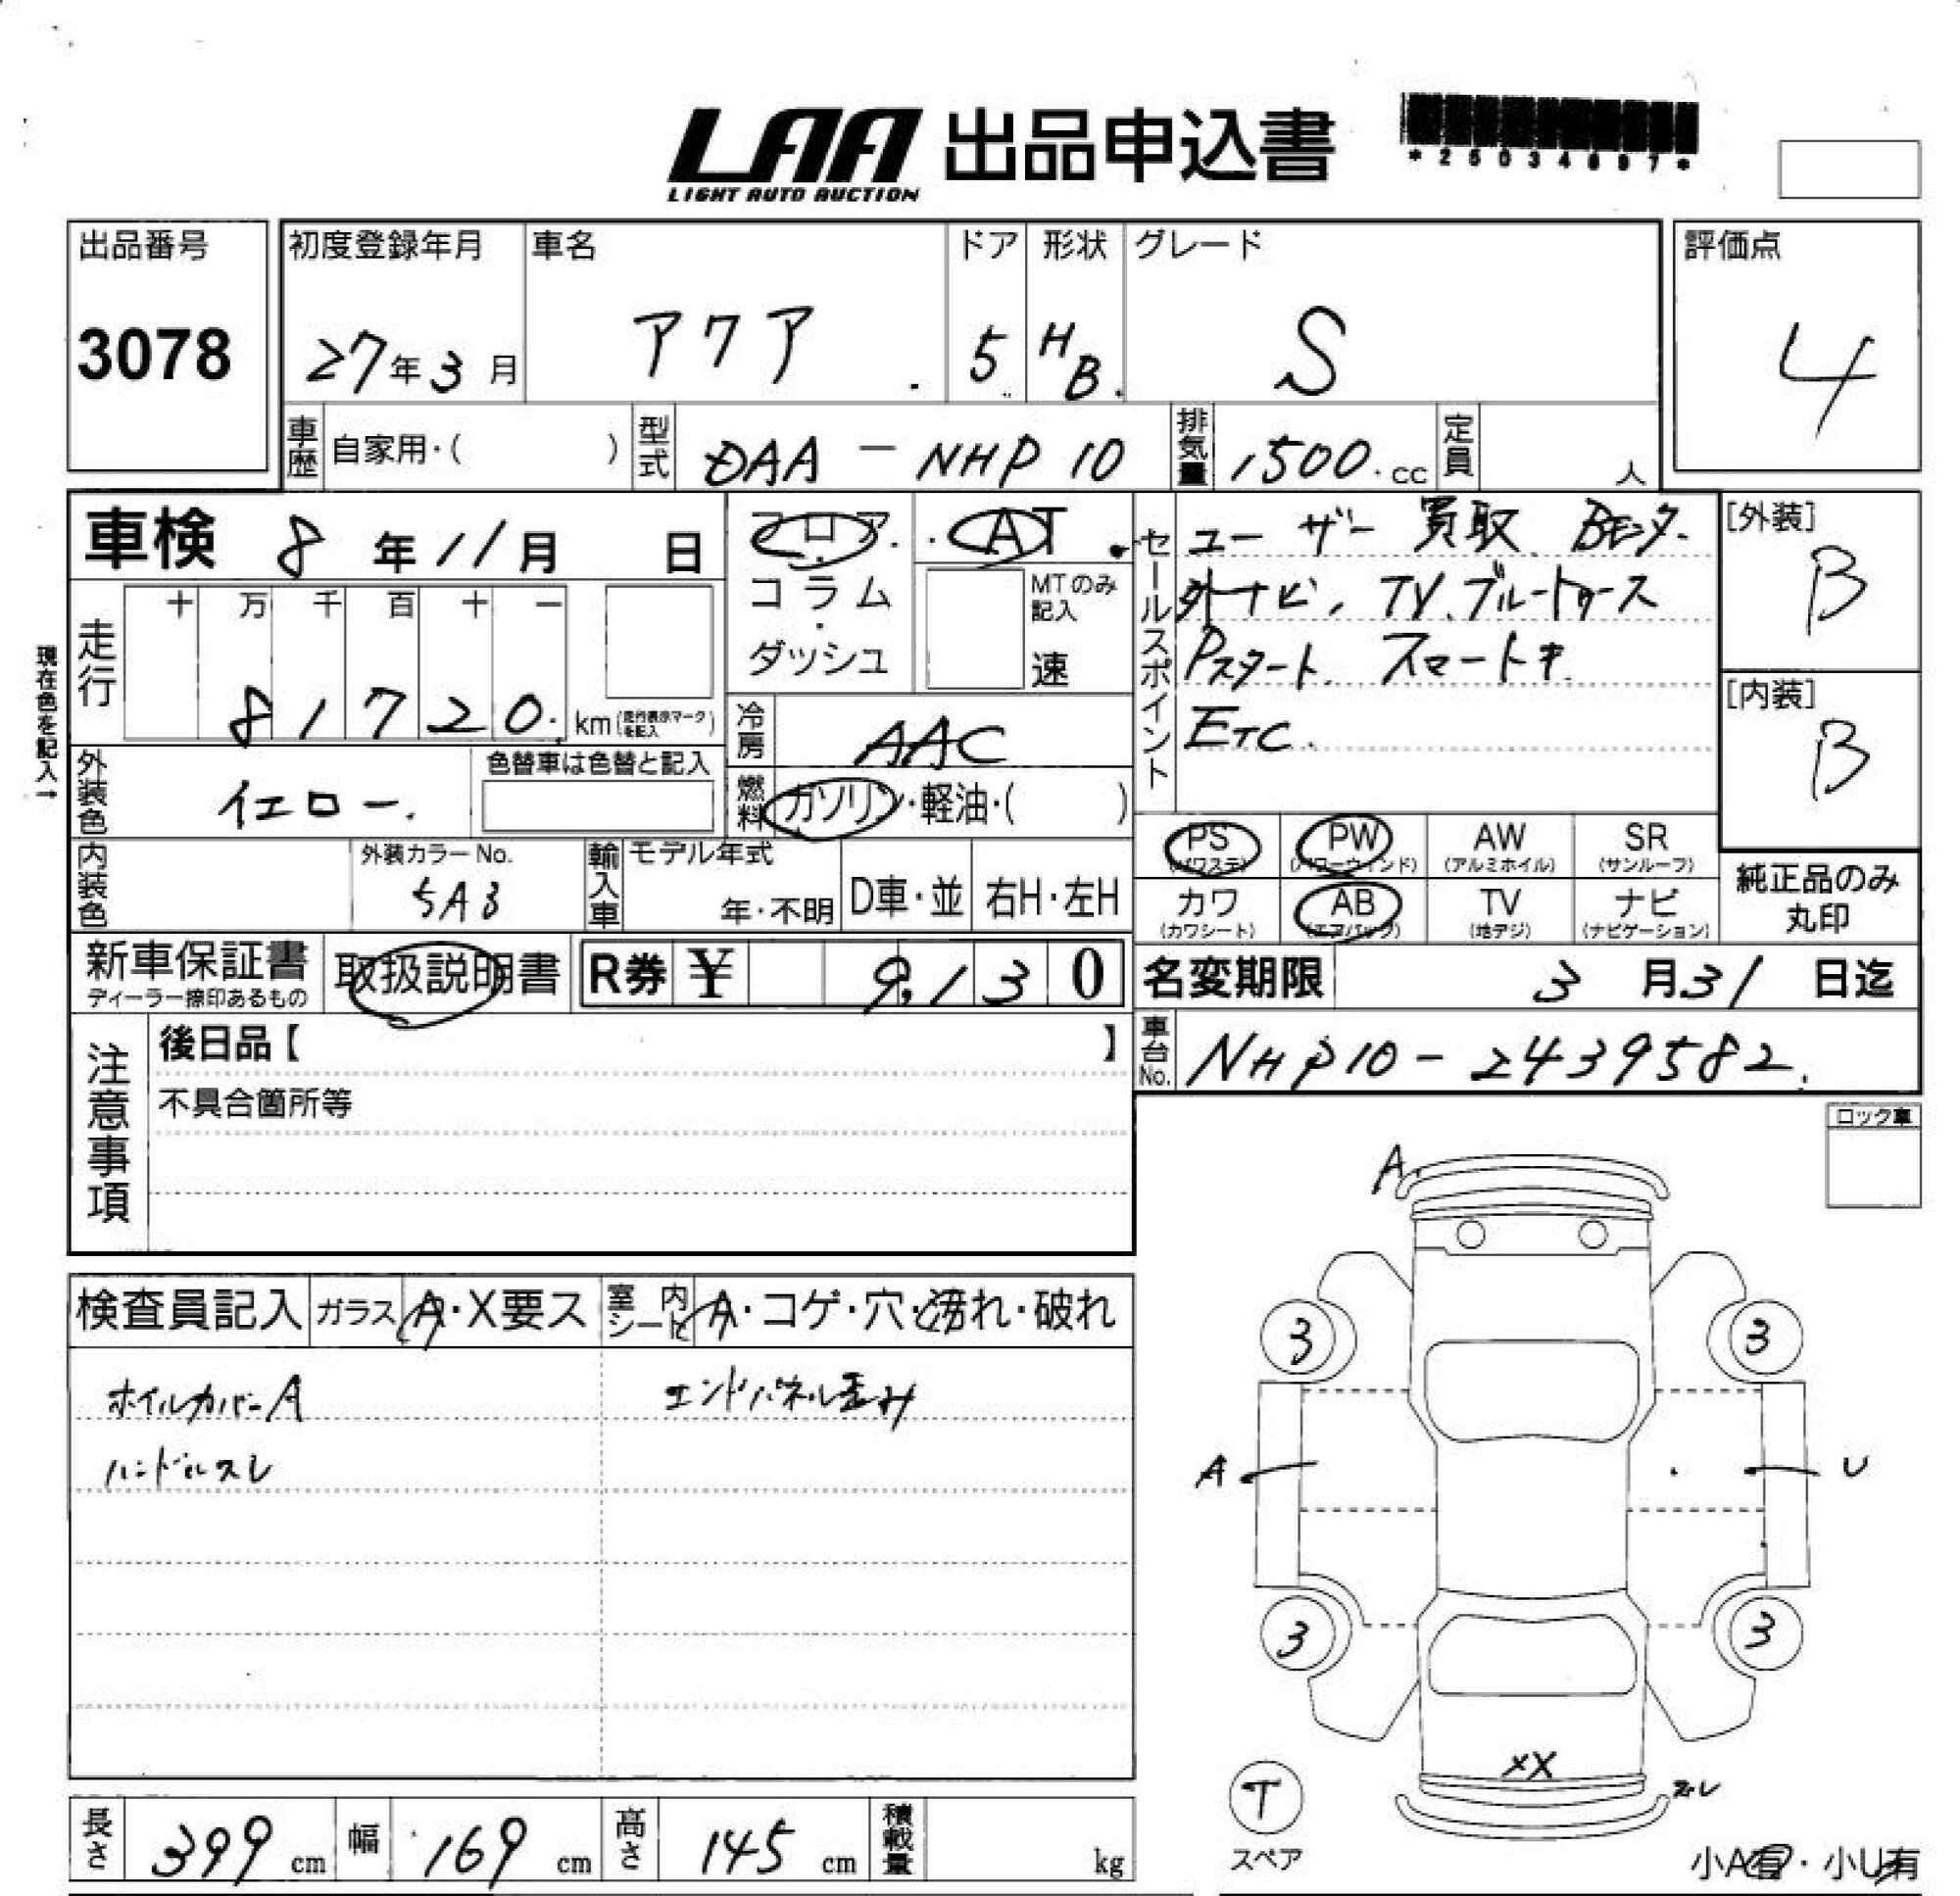 LAA 出品申込書
LIGHT AUTO AUCTION
出品番号
3078
初度登録年月
27年3月
車名
アクア
ドア
5
形状
HB.
グレード
S
評価点
4
車歴 自家用・( )
型式 DAA-NHP10
排気量 1500.cc
定員 人
車検 8年11月 日
フロア・
コラム・
ダッシュ
AT
MTのみ記入
速
セールスポイント
ユーザー買取
外ナビ、TV、ブルートゥース
Pスタート、スマートキ
ETC
[外装]
B
[内装]
B
現在色を記入→
走行 十 万 千 百 十 一
81720 km(走行表示マークを記入)
冷房 AAC
外装色 イエロー.
色替車は色替と記入
燃料 ガソリン・軽油・( )
内装色
外装カラーNo.
5A3
輸入車 モデル年式
年・不明 D車・並 右H・左H
PS (パワステ) PW (パワーウィンド) AW (アルミホイル) SR (サンルーフ)
カワ (カワシート) AB (エアバック) TV (地デジ) ナビ (ナビゲーション)
純正品のみ
丸印
新車保証書
ディーラー捺印あるもの
取扱説明書
R券 ¥ 9,130
名変期限 3月31日迄
車台No. NHP10-2439582.
注意事項
後日品【 】
不具合箇所等
ロック車
検査員記入 ガラス A・X要ス 室内シート A・コゲ・穴・汚れ・破れ
ホイルカバーA
エンドパネル歪み
ハンドルスレ
A
3 3
A U
3 3
XX
スレ
T
スペア
小A有・小U有
長さ 399 cm 幅 169 cm 高さ 145 cm 積載量 kg